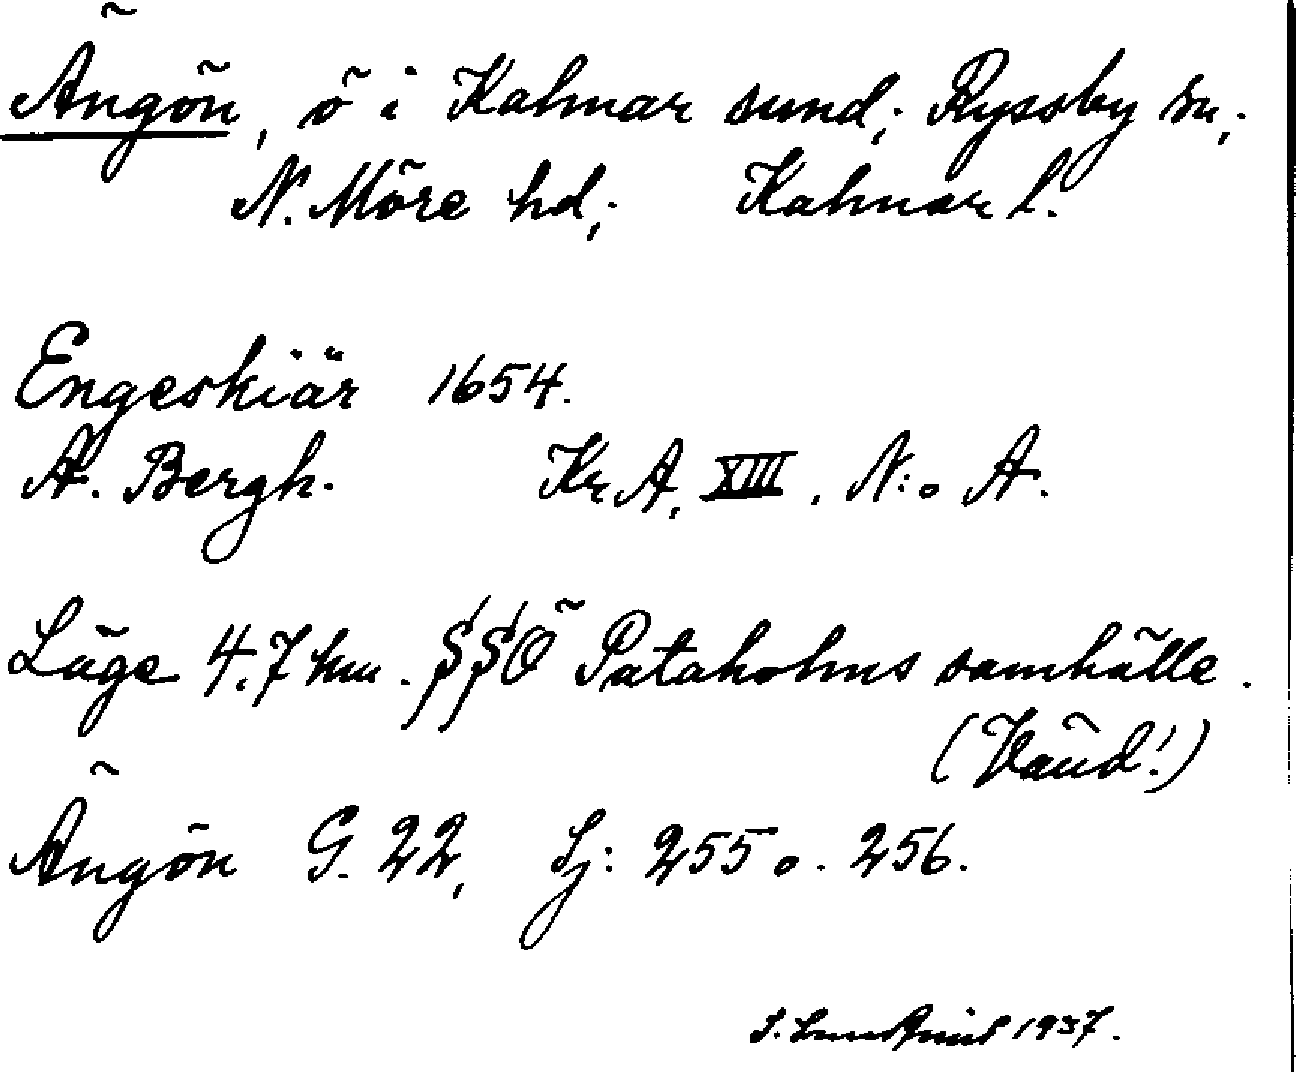 Ängön, ö i Kalmar sund; Ryssby sn;
N. Möre hd; Kalmar l.
Engeskiär 1654.
A. Bergh. KrA, XIII, N:o A.
Läge 4.7 km. SSÖ Pataholms samhälle.
(Vänd!)
Ängön G. 22, Lj: 255 o. 256.
1937.